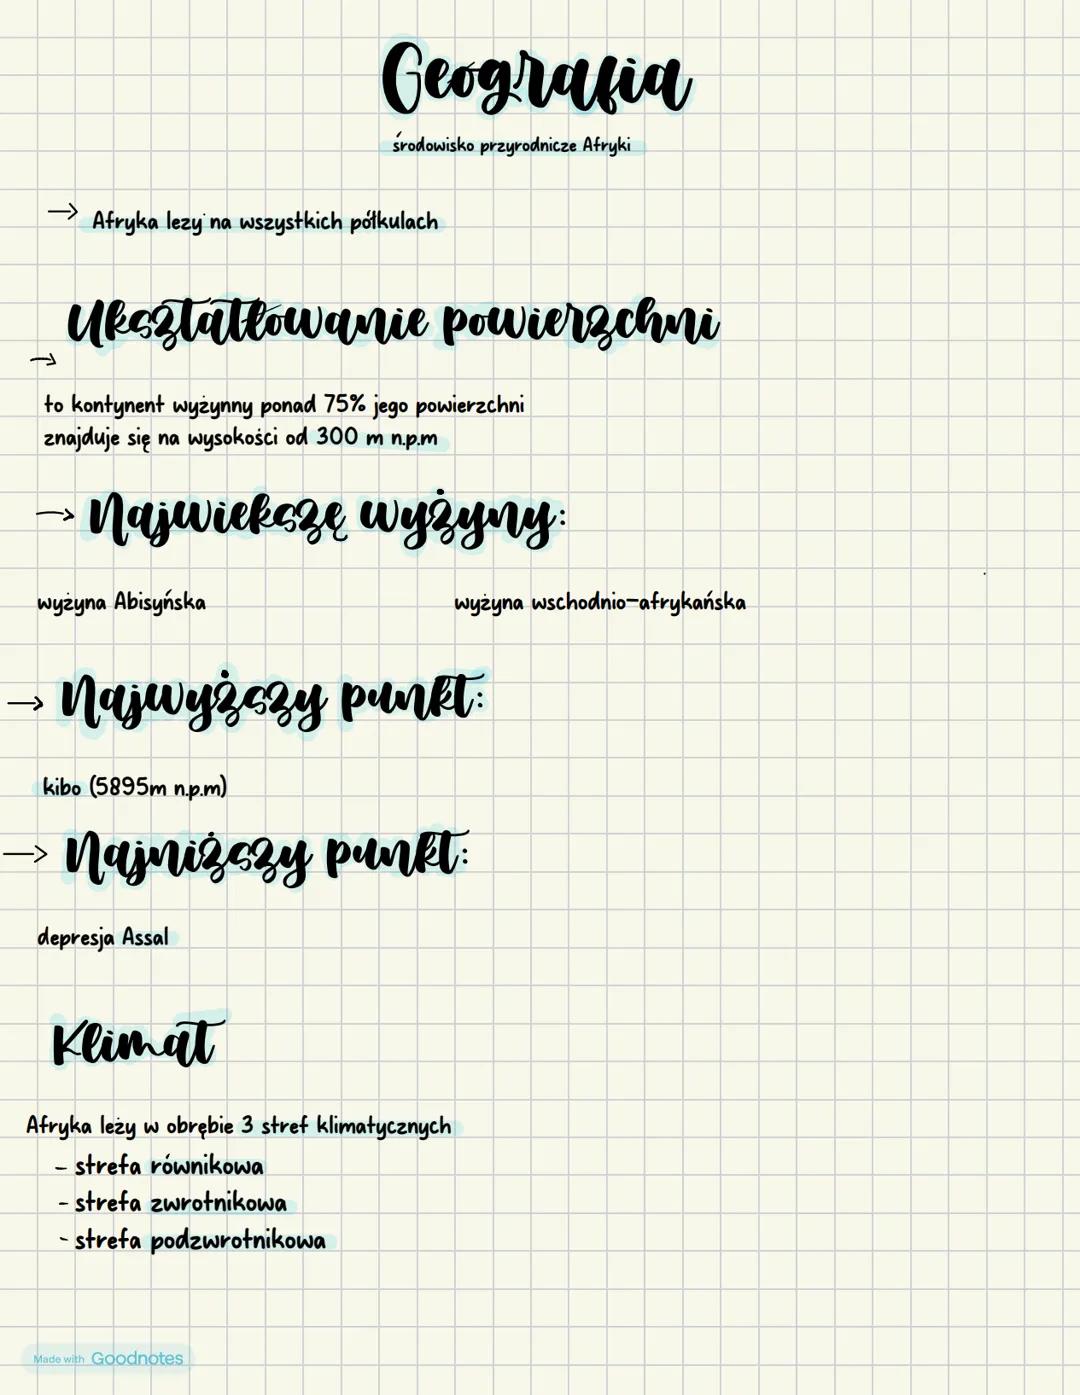 Geografia
środowisko przyrodnicze Afryki
→ Afryka lezy na wszystkich półkulach
Ukształtłowanie powierzchni
→
to kontynent wyżynny ponad 75% jego powierzchni
znajduje się na wysokości od 300 m n.p.m
→ Najwiekszę wyżyny:
wyżyna Abisyńska wyżyna wschodnio-afrykańska
→ Najwyższy punkt:
kibo (5895m n.p.m)
→ Najniższy punkt:
depresja Assal
Klimat
Afryka leży w obrębie 3 stref klimatycznych
- strefa równikowa
- strefa zwrotnikowa
- strefa podzwrotnikowa
Made with Goodnotes